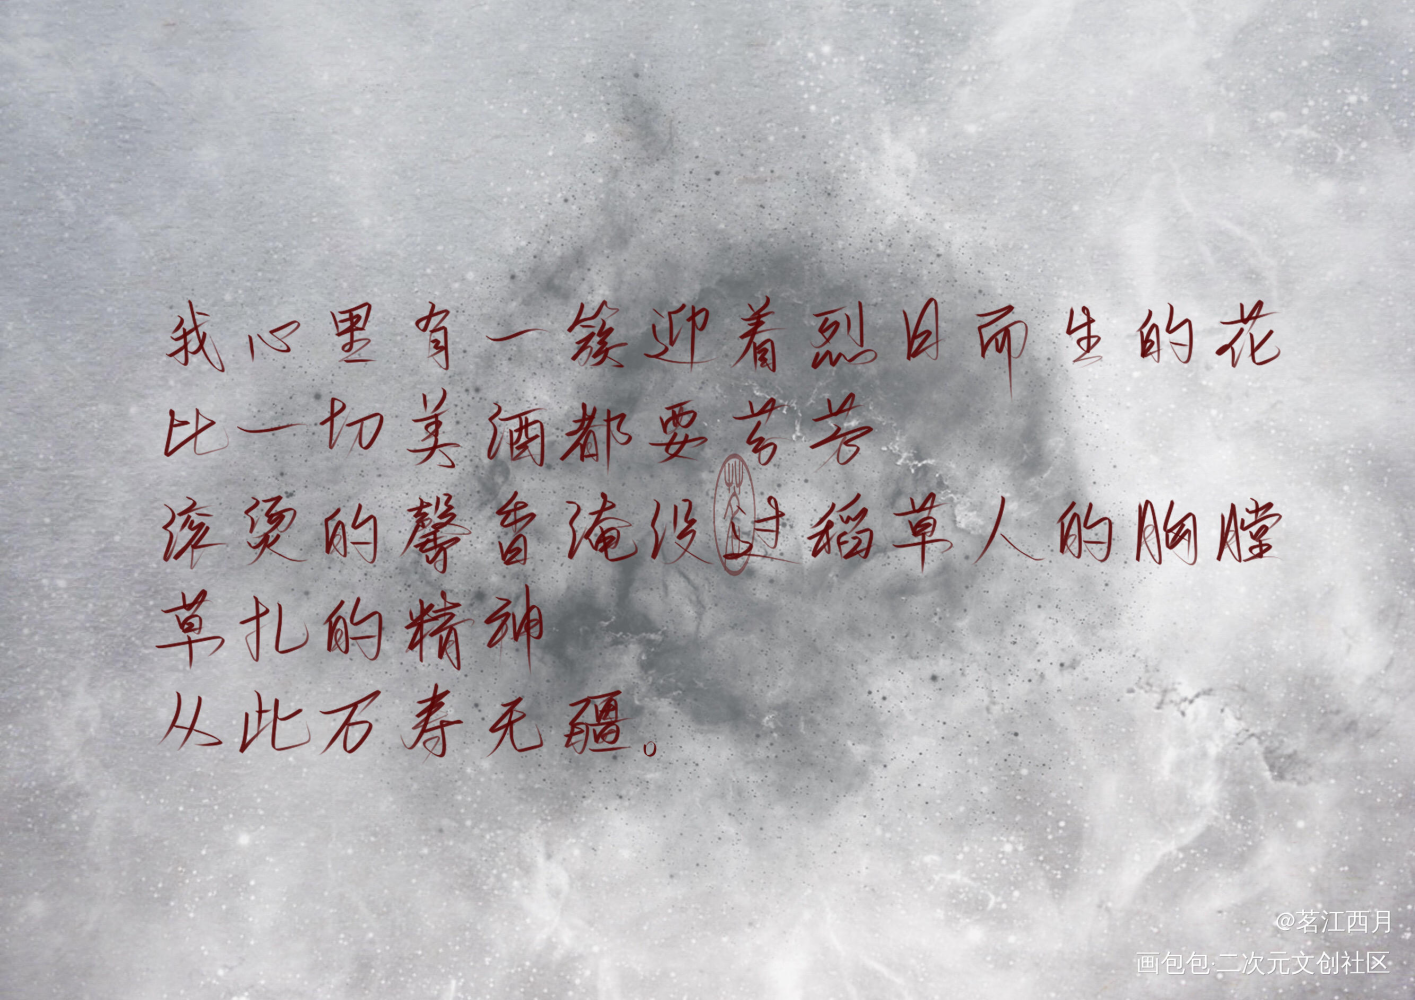 我心里有一簇迎着烈日而生的花
比一切美酒都要芬芳
滚烫的馨香淹没过稻草人的胸膛
草扎的精神
从此万寿无疆。
@茗江西月
画包包·二次元文创社区